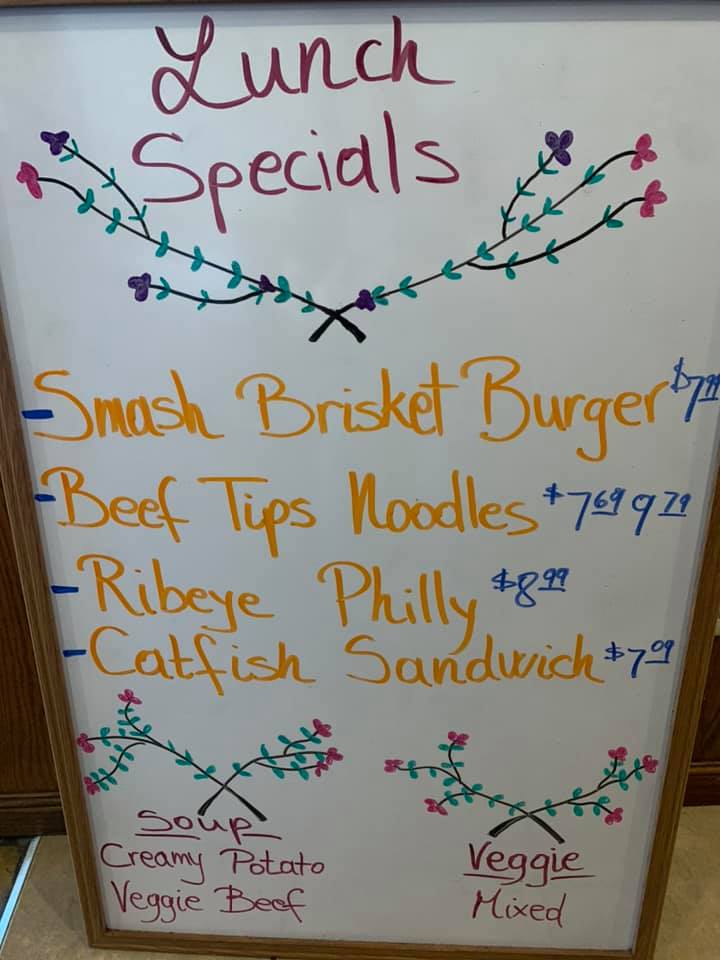 Lunch
Specials
- Smash Brisket Burger $7.99
- Beef Tips Noodles $7.69 9.79
- Ribeye Philly $8.99
- Catfish Sandwich $7.09
Soup
Creamy Potato
Veggie Beef
Veggie
Mixed